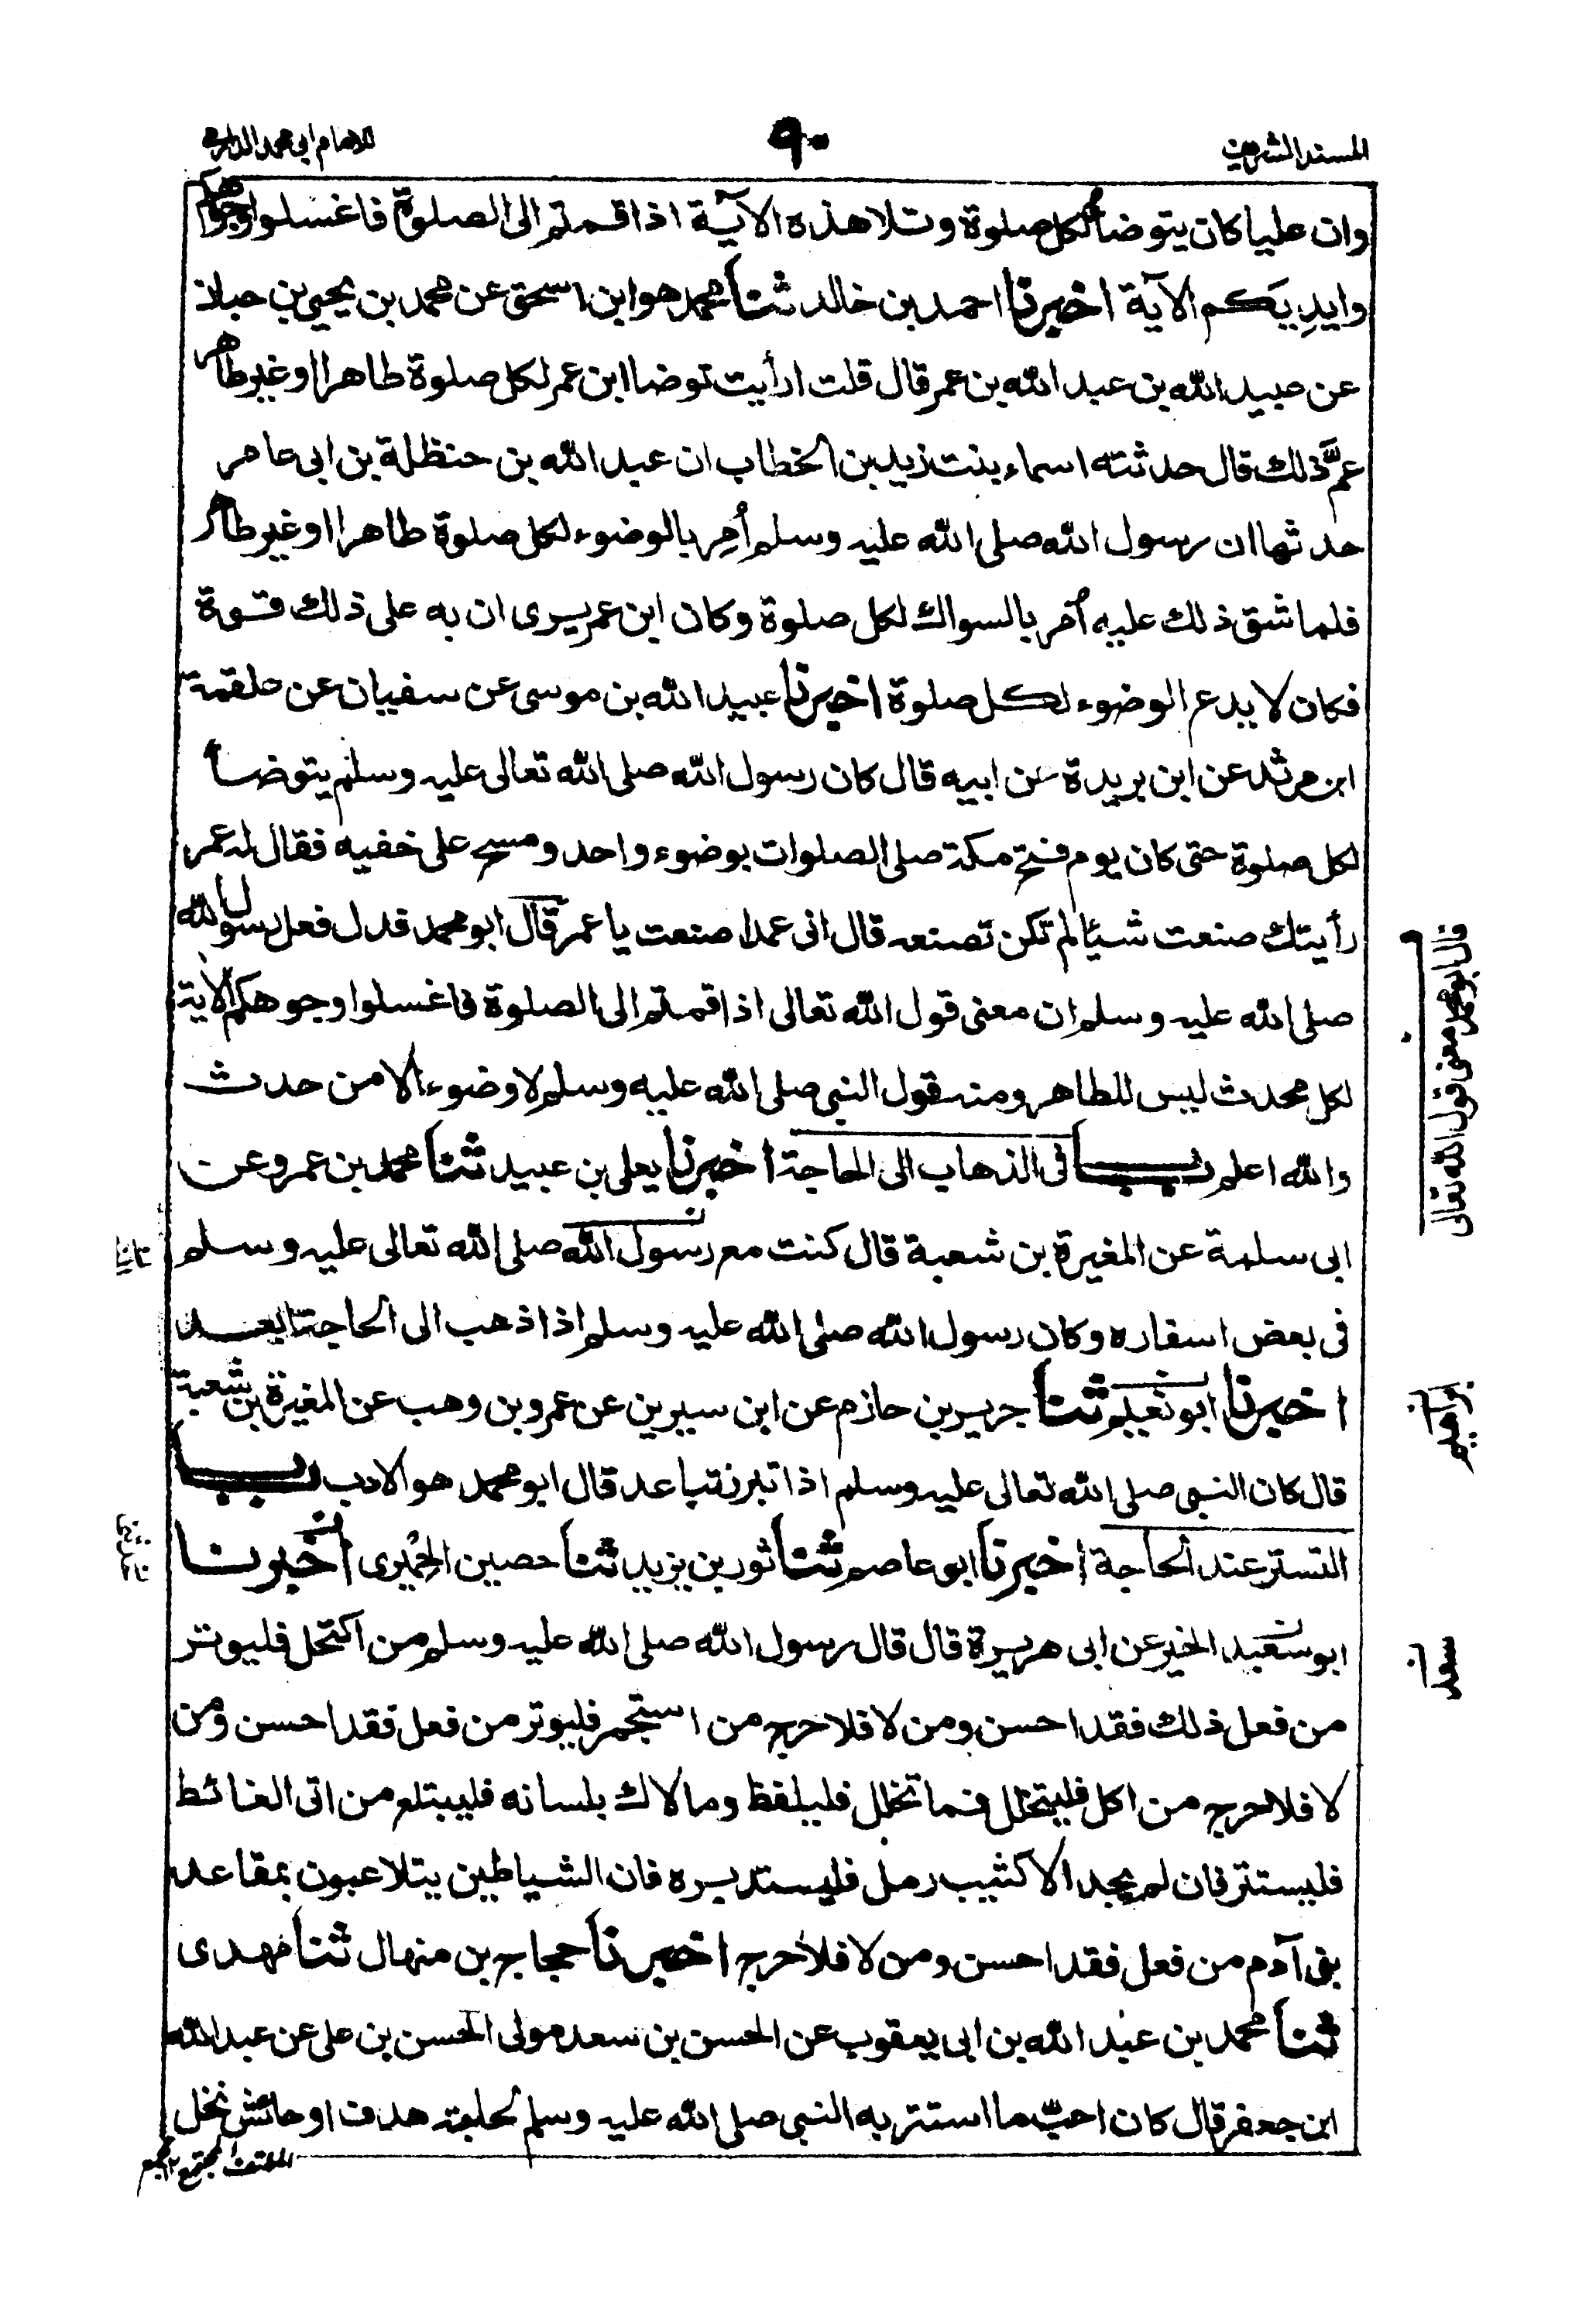 المسند الشريف
٩٠
للامام ابى محمد الدارمى
وان عليا كان يتوضأ لكل صلوة وتلا هذه الآية اذا قمتم الى الصلوة فاغسلوا وجوهكم
وايدِيَكم الآية اخبرنا احمد بن خالد ثنا محمد هو ابن اسحق عن محمد بن يحيى بن حبان
عن عبيد الله بن عبد الله بن عمر قال قلت ارأيت توضا ابن عمر لكل صلوة طاهرا او غير طاهر
عمّ ذلك قال حدثته اسماء بنت زيد بن الخطاب ان عبد الله بن حنظلة بن ابى عامر
حدثها ان رسول الله صلى الله عليه وسلم أُمِر بالوضوء لكل صلوة طاهرا او غير طاهر
فلما شق ذلك عليه أُمر بالسواك لكل صلوة وكان ابن عمر يرى ان به على ذلك قوة
فكان لا يدع الوضوء لكل صلوة اخبرنا عبيد الله بن موسى عن سفيان عن علقمة
ابن مرثد عن ابن بريدة عن ابيه قال كان رسول الله صلى الله تعالى عليه وسلم يتوضأ
لكل صلوة حتى كان يوم فتح مكة صلى الصلوات بوضوء واحد ومسح على خفيه فقال له عمر
رأيتك صنعت شيئا لم تكن تصنعه قال انى عمدا صنعت يا عمر قال ابو محمد فدل فعل رسول الله
صلى الله عليه وسلم ان معنى قول الله تعالى اذا قمتم الى الصلوة فاغسلوا وجوهكم الآية
لكل محدث ليس للطاهر ومنه قول النبى صلى الله عليه وسلم لا وضوء الا من حدث
والله اعلم باب فى الذهاب الى الحاجة اخبرنا يعلى بن عبيد ثنا محمد بن عمرو عن
ابى سلمة عن المغيرة بن شعبة قال كنت مع رسول الله صلى الله تعالى عليه وسلم
فى بعض اسفاره وكان رسول الله صلى الله عليه وسلم اذا ذهب الى الحاجة ابعد
اخبرنا ابو نعيم ثنا جرير بن حازم عن ابن سيرين عن عمرو بن وهب عن المغيرة بن شعبة
قال كان النبى صلى الله تعالى عليه وسلم اذا تبرز تباعد قال ابو محمد هو الادب باب
التستر عند الحاجة اخبرنا ابو عاصم ثنا ثور بن يزيد ثنا حصين الحِمْيرى اخبرنا
ابو سعيد الخير عن ابى هريرة قال قال رسول الله صلى الله عليه وسلم من اكتحل فليوتر
من فعل ذلك فقد احسن ومن لا فلا حرج من استجمر فليوتر من فعل فقد احسن ومن
لا فلا حرج من اكل فليتخلل فما تخلل فليلفظ وما لاك بلسانه فليبتلع من اتى الغائط
فليستتر فان لم يجد الا كثيب رمل فليستدبره فان الشياطين يتلاعبون بمقاعد
بنى آدم من فعل فقد احسن ومن لا فلا حرج اخبرنا حجاج بن منهال ثنا مهدى
ثنا محمد بن عبد الله بن ابى يعقوب عن الحسن بن سعد مولى الحسن بن على عن عبد الله
ابن جعفر قال كان احبّ ما استتر به النبى صلى الله عليه وسلم لحاجته هدف او حائش نخل
قال ابو محمد معنى قول الله تعالى
سعد